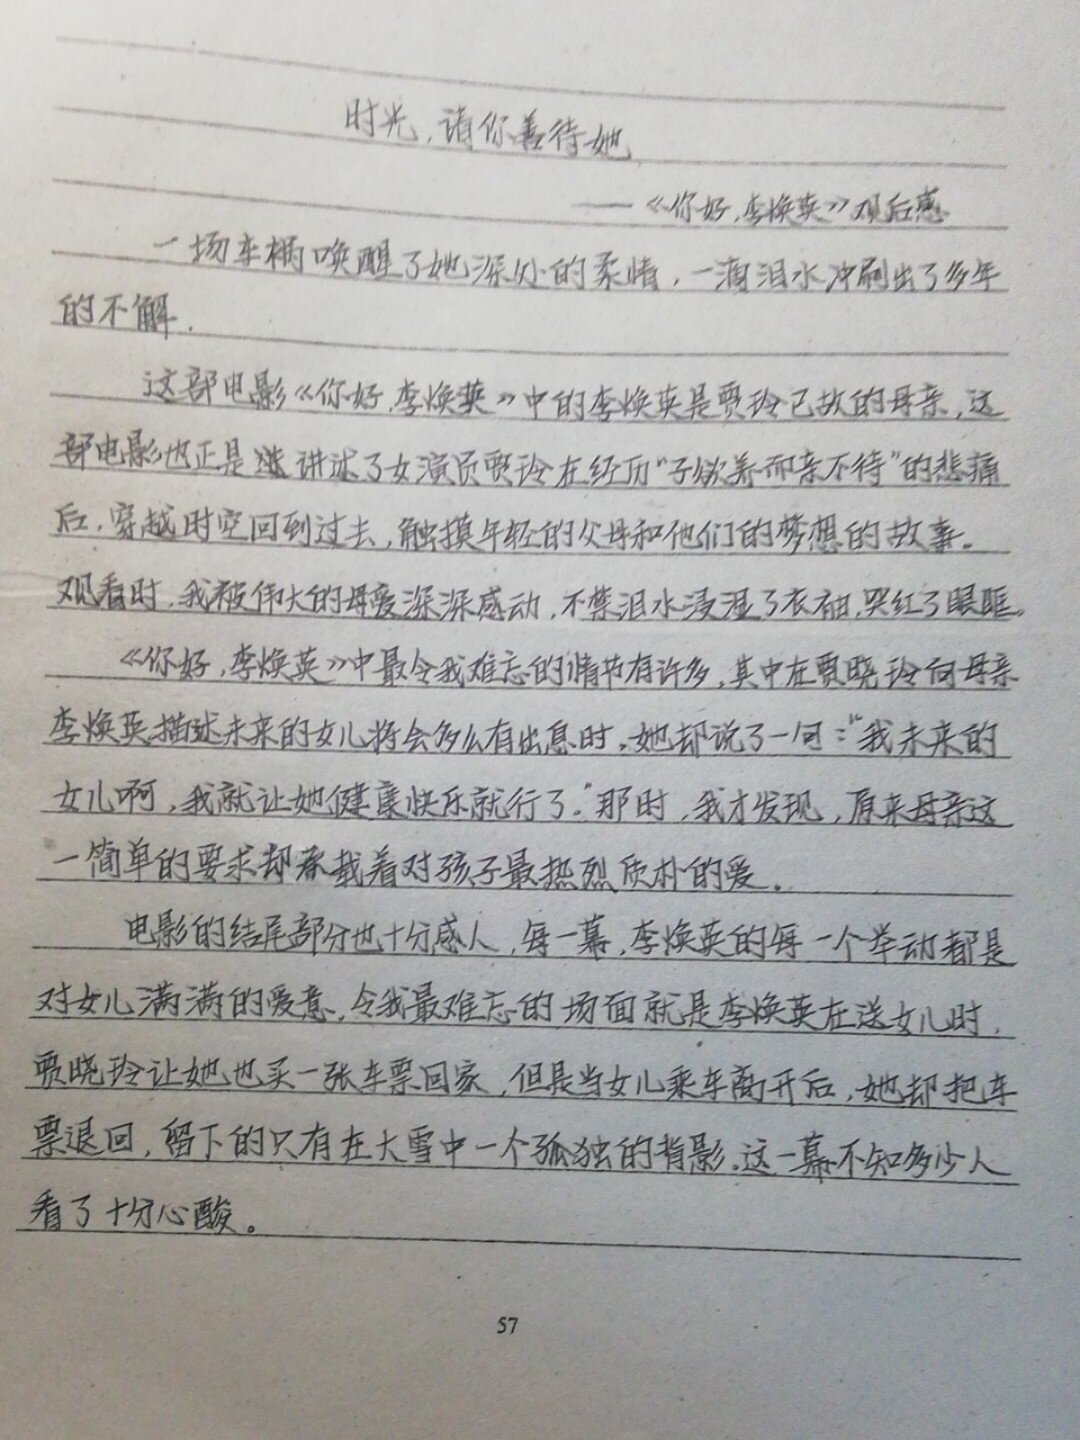 时光，请你善待她
——《你好，李焕英》观后感
一场车祸唤醒了她深处的柔情，一滴泪水冲刷出了多年
的不解.
这部电影《你好，李焕英》中的李焕英是贾玲已故的母亲，这
部电影也正是 讲述了女演员贾玲在经历“子欲养而亲不待”的悲痛
后，穿越时空回到过去，触摸年轻的父母和他们的梦想的故事。
观看时，我被伟大的母爱深深感动，不禁泪水浸湿了衣袖，哭红了眼眶.
《你好，李焕英》中最令我难忘的情节有许多，其中在贾晓玲向母亲
李焕英描述未来的女儿将会多么有出息时，她却说了一句：“我未来的
女儿啊，我就让她健康快乐就行了。”那时，我才发现，原来母亲这
一简单的要求却承载着对孩子最热烈质朴的爱。
电影的结尾部分也十分感人，每一幕，李焕英的每一个举动都是
对女儿满满的爱意，令我最难忘的场面就是李焕英在送女儿时，
贾晓玲让她也买一张车票回家，但是当女儿乘车离开后，她却把车
票退回，留下的只有在大雪中一个孤独的背影，这一幕不知多少人
看了十分心酸。
57